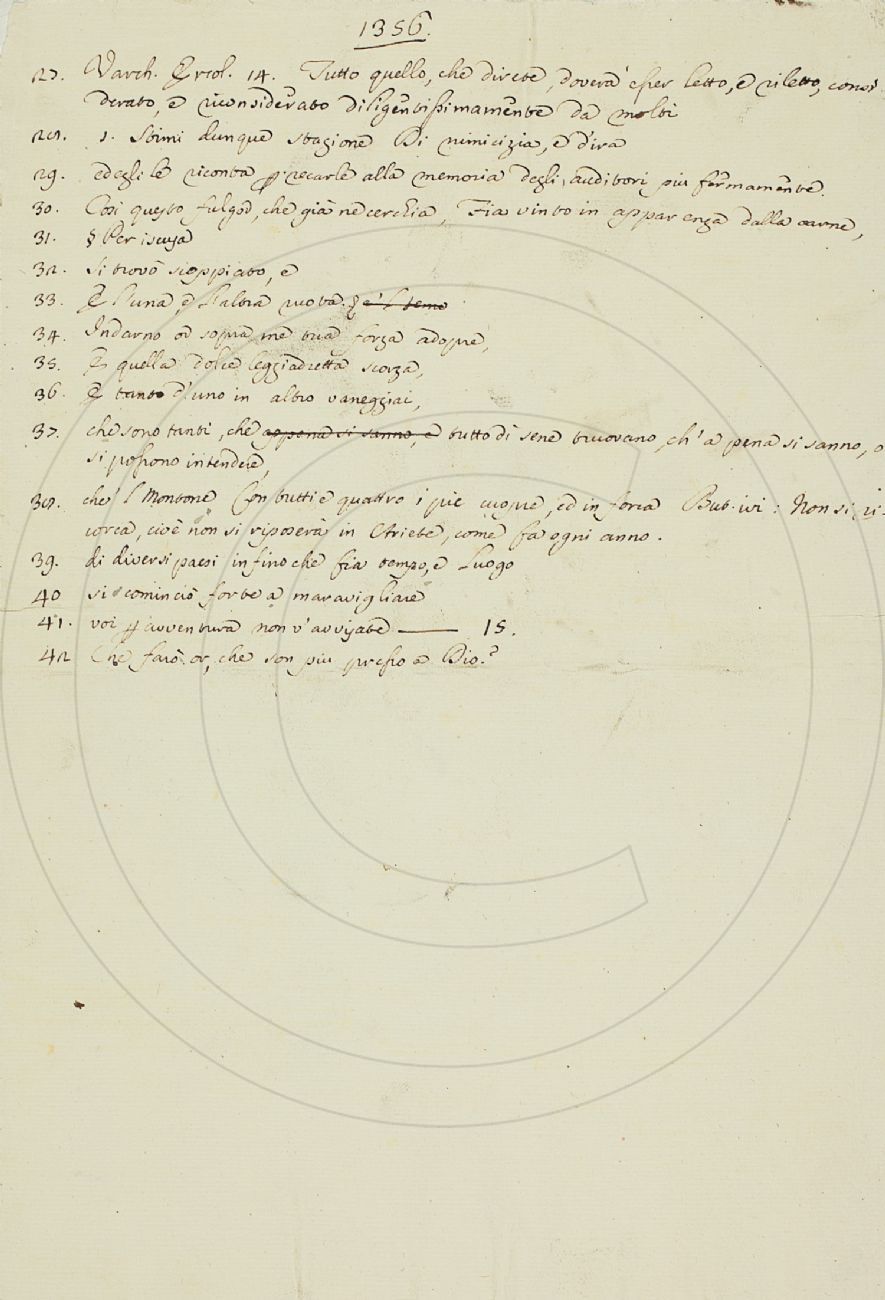 1356.
27. Varch. Ercol. 14. Tutto quello, che direte, doverà esser letto, e riletto, consi-
derato, e riconsiderato diligentissimamente da molti
28. 1. Stimi dunque stagione Di nimicizia, e d'ira
29. ed egli le riconta p recarle alla memoria degli auditori piu fermamente.
30. Così questo fulgor, che già ne cerchia, Fia vinto in apparenza dalla carne,
31. § Per iscusa
32. si trovò sioppiato, e
33. E l'una, e l'altra ruota. § e 'l temo
34. Indarno or sopra me tua forza adopre,
35. E quella dolce leggiadretta scorza,
36. E tanto d'uno in altro vaneggiai,
37. che sono tanti, che appena si sanno, e tutto dì se ne truovano, ch'a pena si sanno, o
si possono intendere,
38. che 'l Montone Con tutti e quattro i piè cuopre, ed inforca But. ivi: Non si ri-
corca, cioè non si riposerà in Ariete, come fa ogni anno.
39. di diversi paesi infino che fia tempo, e luogo
40 si cominciò forte a maravigliare
41. voi p avventura non v'avvisate —— 15.
42 Che farò or, che son piu presso a Dio.?